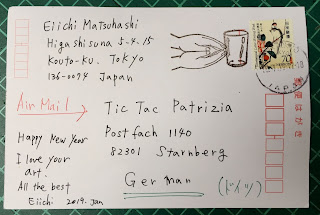 Eiichi Matsuhashi
Higashisuna 5-4-15
Kouto-ku. Tokyo
136-0074 Japan
70
Air Mail
Tic Tac Patrizia
Postfach 1140
82301 Starnberg
German
(ドイツ)
Happy New Year
I love your
art.
All the best
Eiichi 2019. Jan
郵便はがき